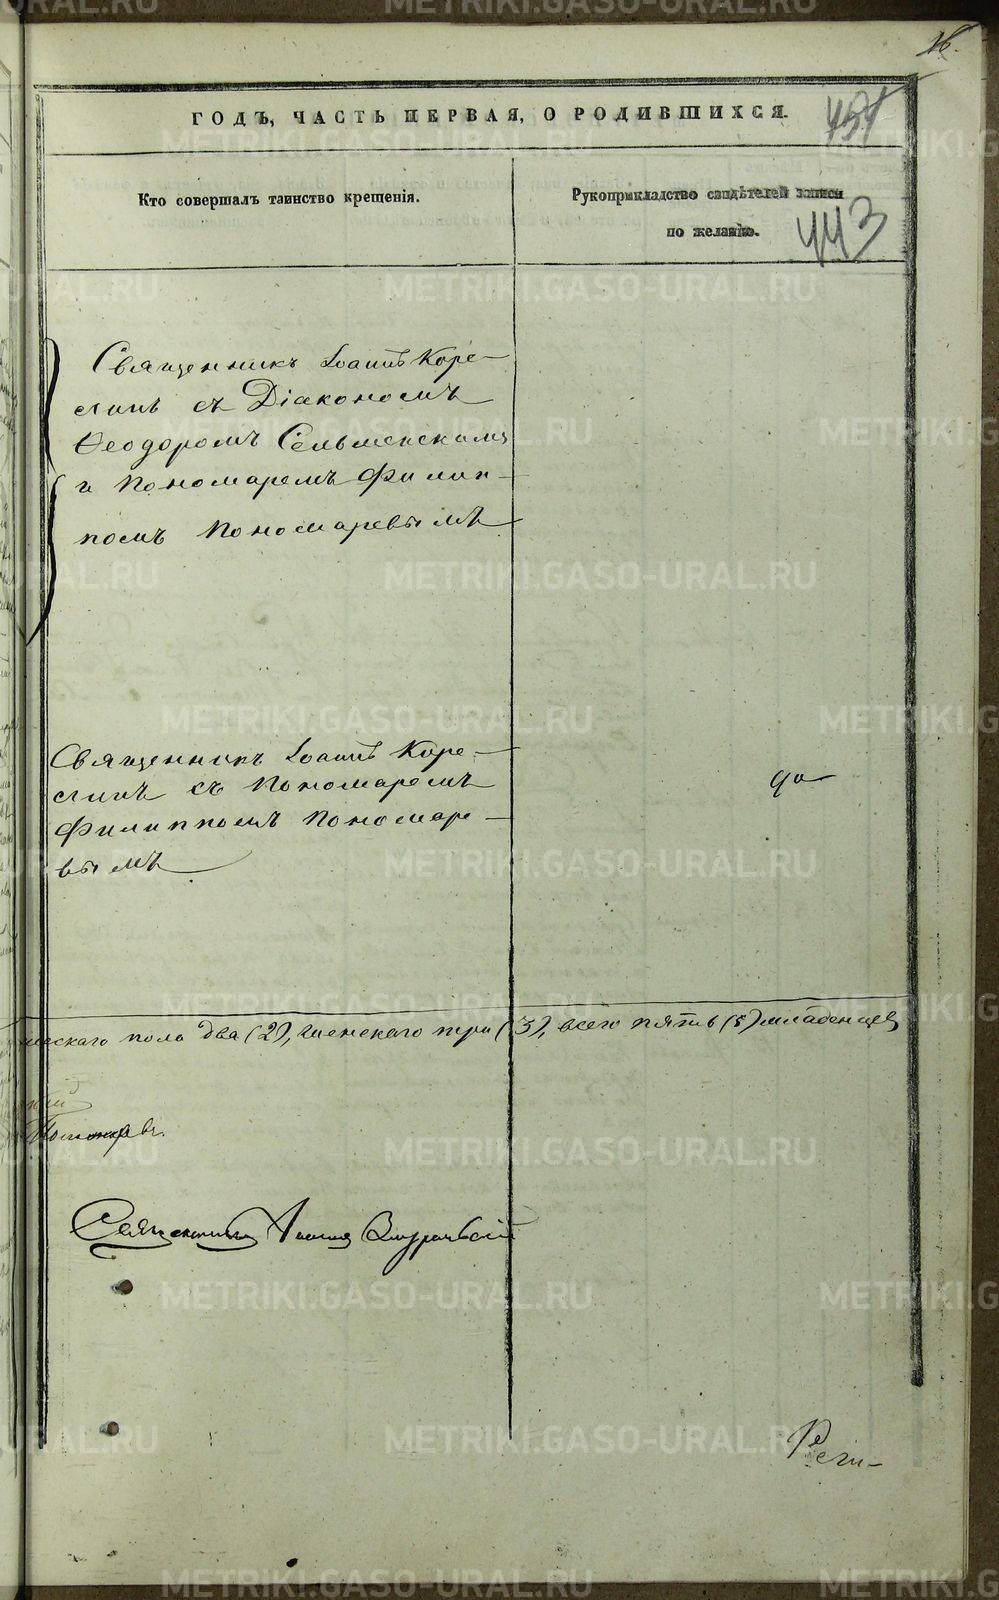 16.
ГОДЪ, ЧАСТЬ ПЕРВАЯ, О РОДИВШИХСЯ.
443
Кто совершалъ таинство крещенія.
Рукоприкладство свидѣтелей записи
по желанію.
Священникъ Іоаннъ Коре-
линъ съ Діакономъ
Ѳеодоромъ
и Пономаремъ Филип-
помъ Пономаревымъ
Священникъ Іоаннъ Коре-
линъ съ Пономаремъ
Филиппомъ Пономаре-
вымъ
пола два (2), женскаго три (3), всего пять (5) младенцев
Священникъ
METRIKI.GASO-URAL.RU